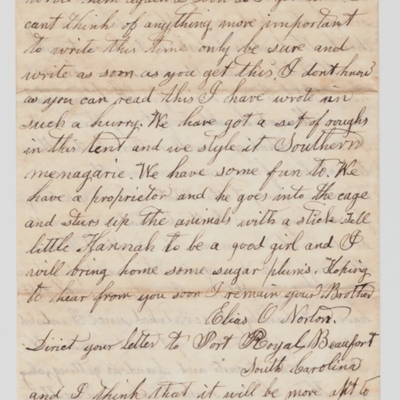 cant think of anything more important
to write this time only be sure and
write as soon as you get this. I dont know
as you can read this I have wrote in
such a hurry. We have got a set of roughs
in this tent and we style it Southern
menagarie. We have some fun to. We
have a proprietor and he goes into the cage
and sturs up the animals with a stick. tell
little Hannah to be a good girl and I
will bring home some sugar plums. Hoping
to hear from you soon I remain your Brother
Elias O Norton.
Dirict your letter to Port Royal Beaufort
South Carolina
and I think that it will be more apt to